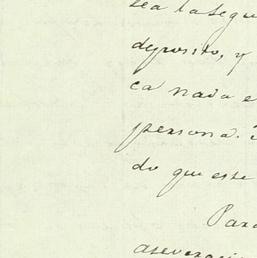 sea la segu
deposito, y
ca nada e
persona.
do que este
Para
aseveració